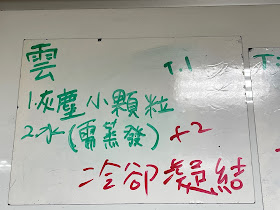 雲 T.1
1.灰塵小顆粒
2.水(需蒸發) +2
冷卻凝結